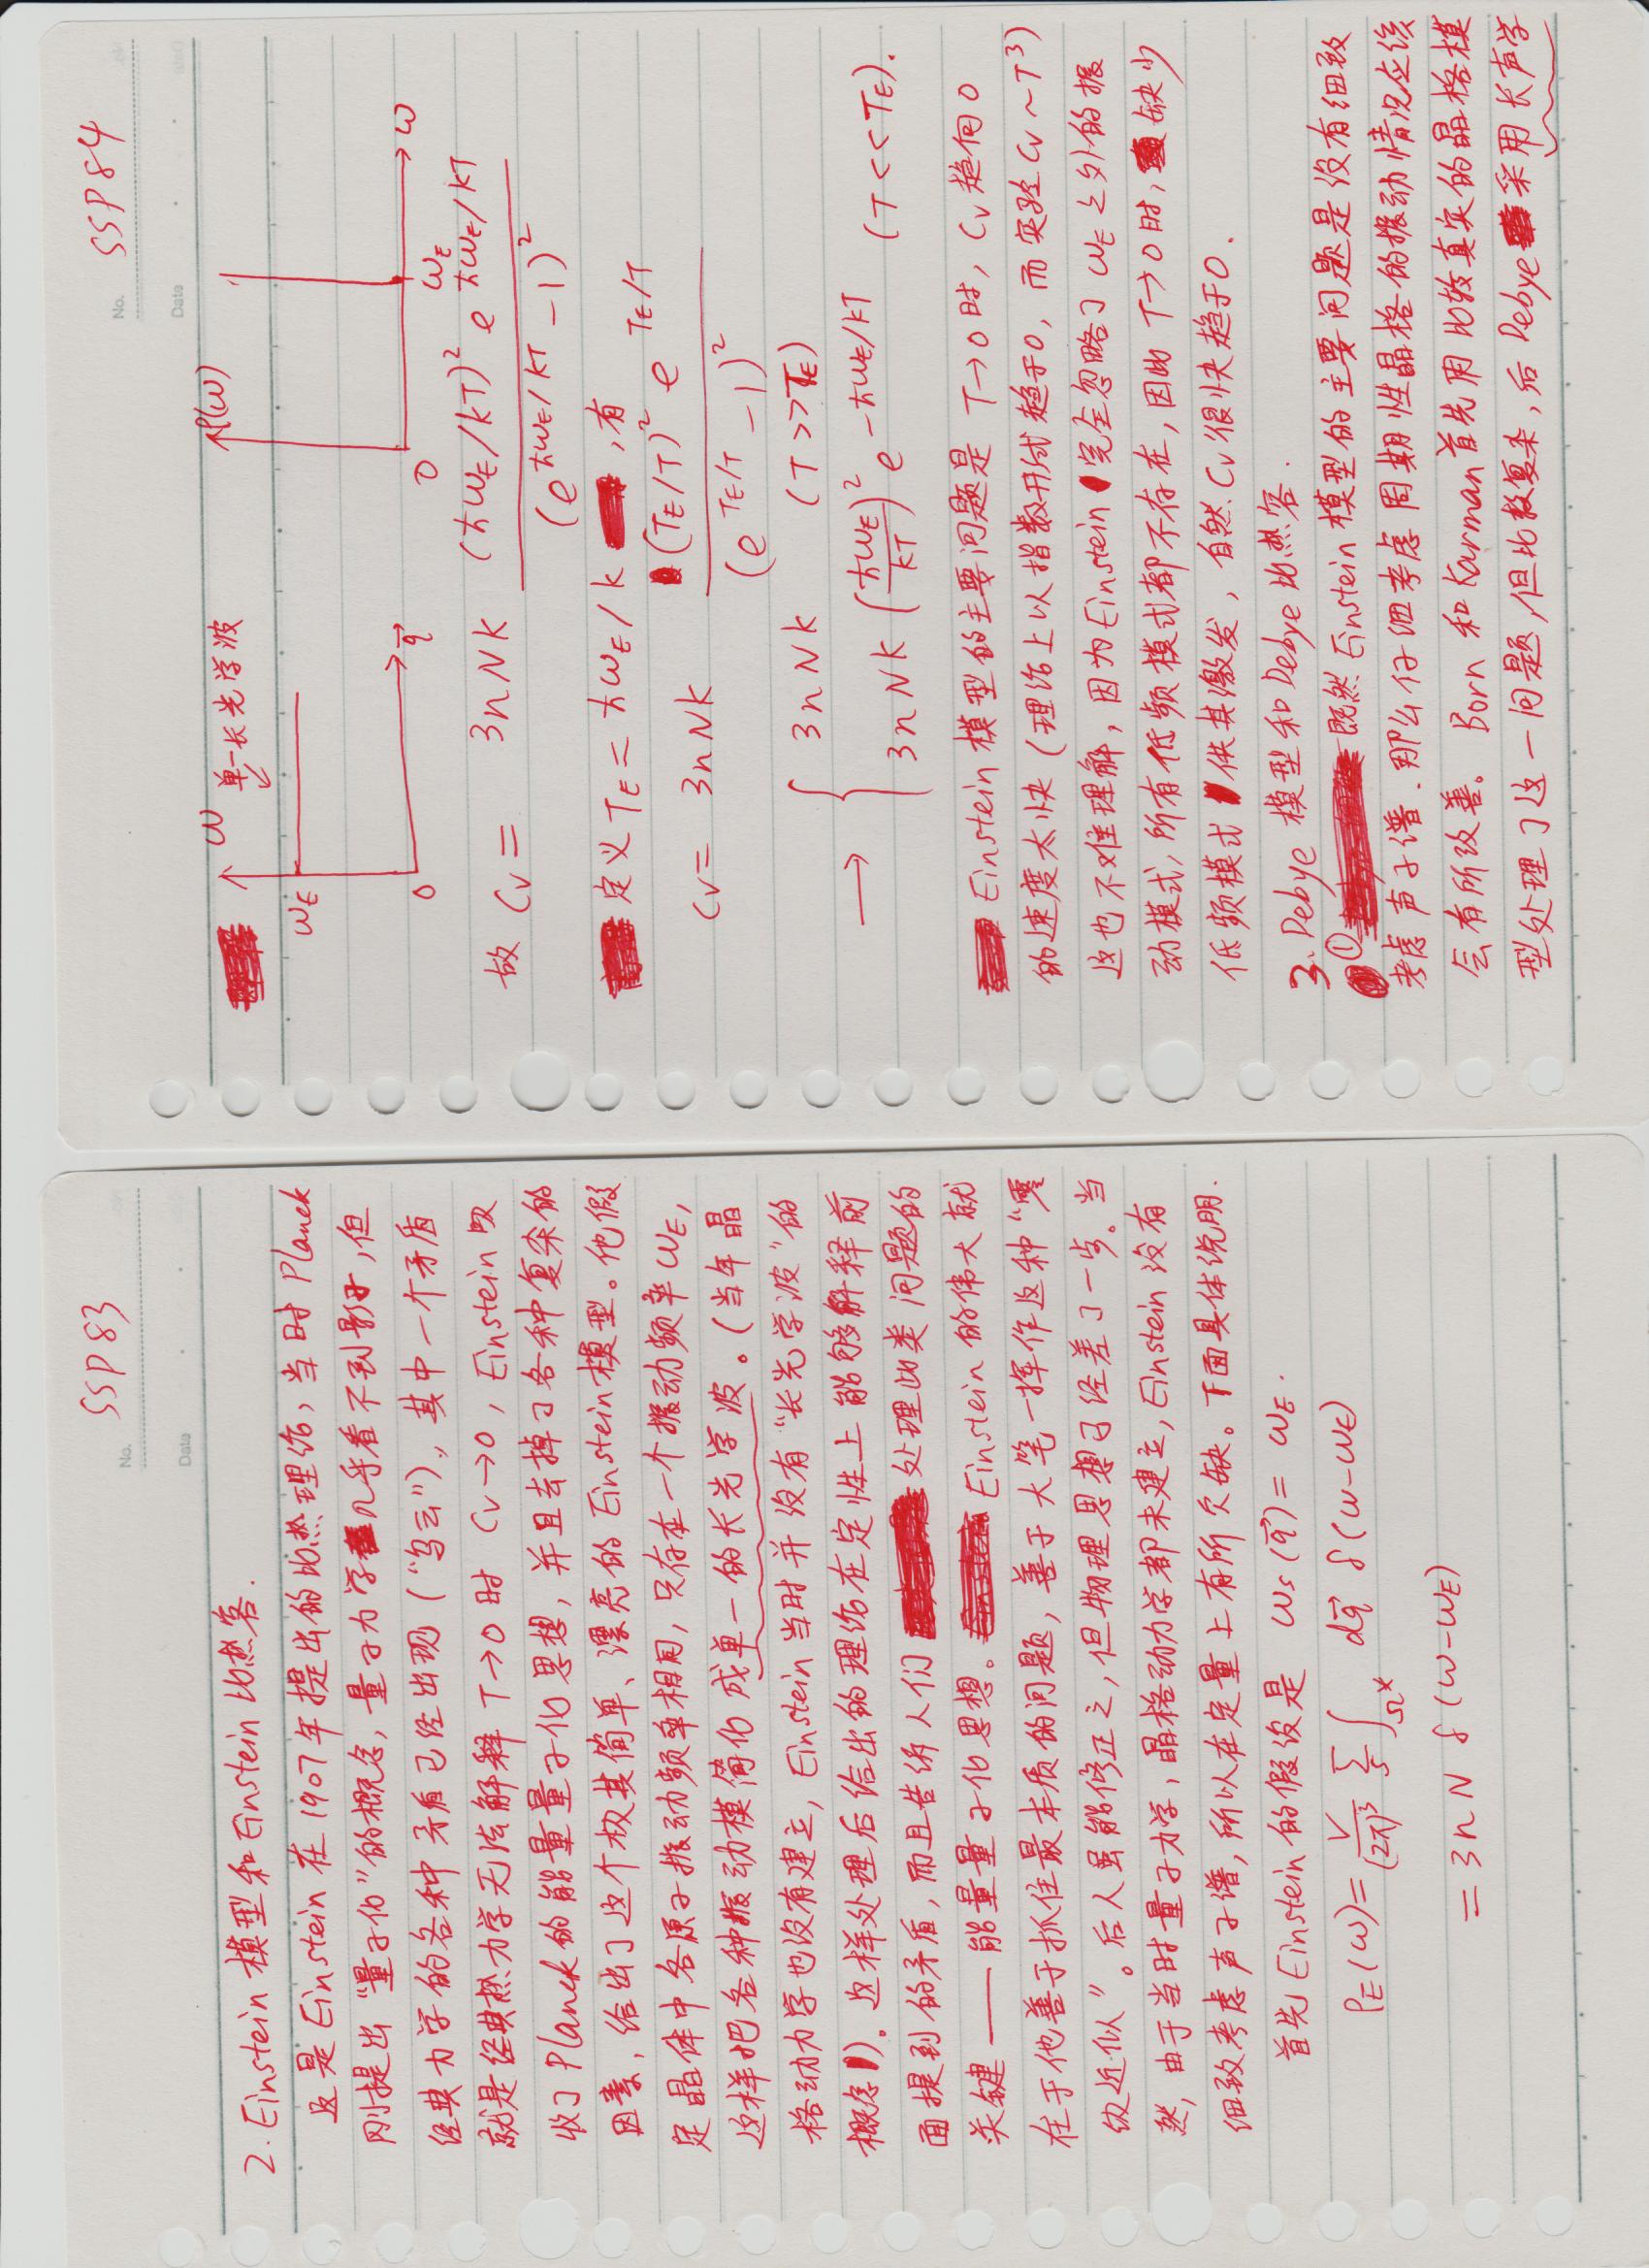 SSP 83
No.
Date
2. Einstein 模型和 Einstein 比热容.
这是 Einstein 在 1907 年提出的比热理论, 当时 Planck
刚提出 "量子化" 的概念, 量子力学几乎看不到影子, 但
经典力学的各种矛盾已经出现 ("乌云"), 其中一个矛盾
就是经典热力学无法解释 T→0 时 Cv→0, Einstein 吸
收了 Planck 的能量量子化思想, 并且去掉了各种复杂的
因素, 给出了这个极其简单、漂亮的 Einstein 模型。他假
定晶体中各原子振动频率相同, 只存在一个振动频率 ωE,
这样把各种振动模简化成单一的长光学波。(当年晶
格动力学也没有建立, Einstein 当时并没有 "长光学波" 的
概念)。这样处理后给出的理论在定性上能够解释前
面提到的矛盾, 而且告诉人们 处理此类问题的
关键 —— 能量量子化思想。 Einstein 的伟大就
在于他善于抓住最本质的问题, 善于大笔一挥作这种 "零
级近似"。后人虽能修正之, 但物理思想已经差了一步。当
然, 由于当时量子力学, 晶格动力学都未建立, Einstein 没有
细致考虑声子谱, 所以在定量上有所欠缺。下面具体说明.
首先 Einstein 的假设是 ωs(q⃗) = ωE.
ρE(ω) = V/(2π)³ Σs ∫Ω* dq⃗ δ(ω-ωE)
= 3nN δ(ω-ωE)
SSP 84
No.
Date
ω 单一长光学波
ωE
0 q⃗
ρ(ω)
0 ωE ω
故 Cv = 3nNk (ħωE/kT)² e^{ħωE/kT} / (e^{ħωE/kT} - 1)²
定义 TE = ħωE/k , 有
Cv = 3nNk (TE/T)² e^{TE/T} / (e^{TE/T} - 1)²
→ { 3nNk (T>>TE)
3nNk (ħωE/kT)² e^{-ħωE/kT} (T<<TE).
Einstein 模型的主要问题是 T→0 时, Cv 趋向 0
的速度太快 (理论上以指数形式趋于0, 而实验 Cv ~ T³)
这也不难理解, 因为 Einstein 完全忽略了 ωE 之外的振
动模式, 所有低频模式都不存在, 因此 T→0 时, 缺少
低频模式供其激发, 自然 Cv 很快趋于0.
3. Debye 模型和 Debye 比热容.
① 既然 Einstein 模型的主要问题是没有细致
考虑声子谱. 那么仔细考虑周期性晶格的振动情况应该
会有所改善。 Born 和 Karman 首先用比较真实的晶格模
型处理了这一问题, 但比较复杂, 后 Debye 采用长声学